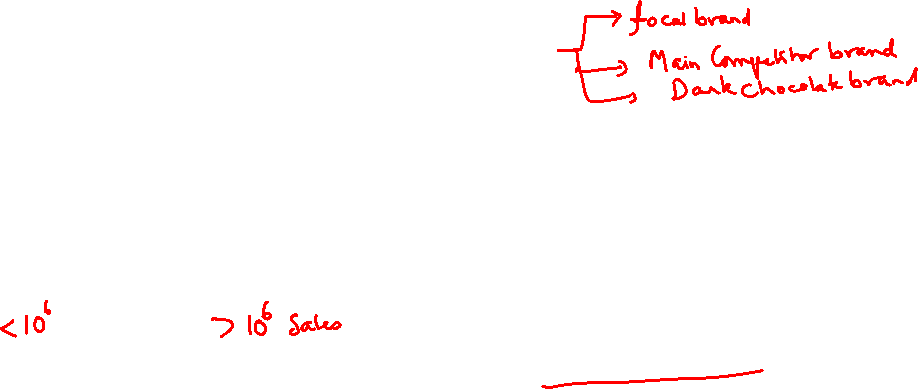 focal brand
Main Competitor brand
Dark chocolate brand
<10⁶
>10⁶ Sales